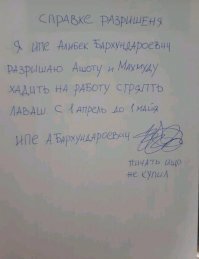 СПРАВКЕ РАЗРИШЕНЯ
Я ИПЕ АЛИБЕК БАРХУНДАРОЕВИЧ
РАЗРЫШАЮ АШОТУ И МАХМУДУ
ХАДИТЬ НА РАБОТУ СТРЯПТЬ
ЛАВАШ С 1 АПРЕЛЬ ДО 1 МАЙЯ
ИПЕ А.БАРХУНДАРОЕВИЧ
ПИЧАТЬ ИЩО
НЕ КУПИЛ